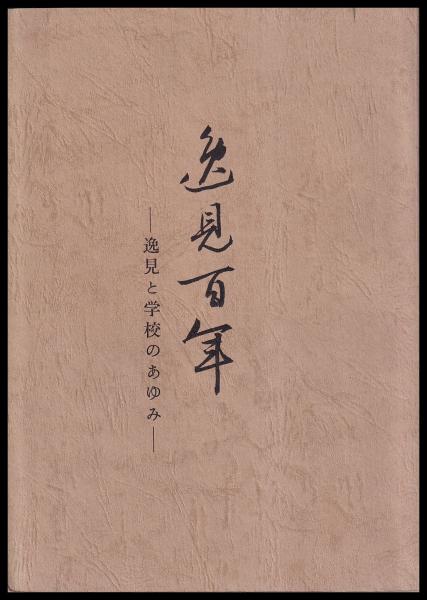 逸見百年
―逸見と学校のあゆみ―